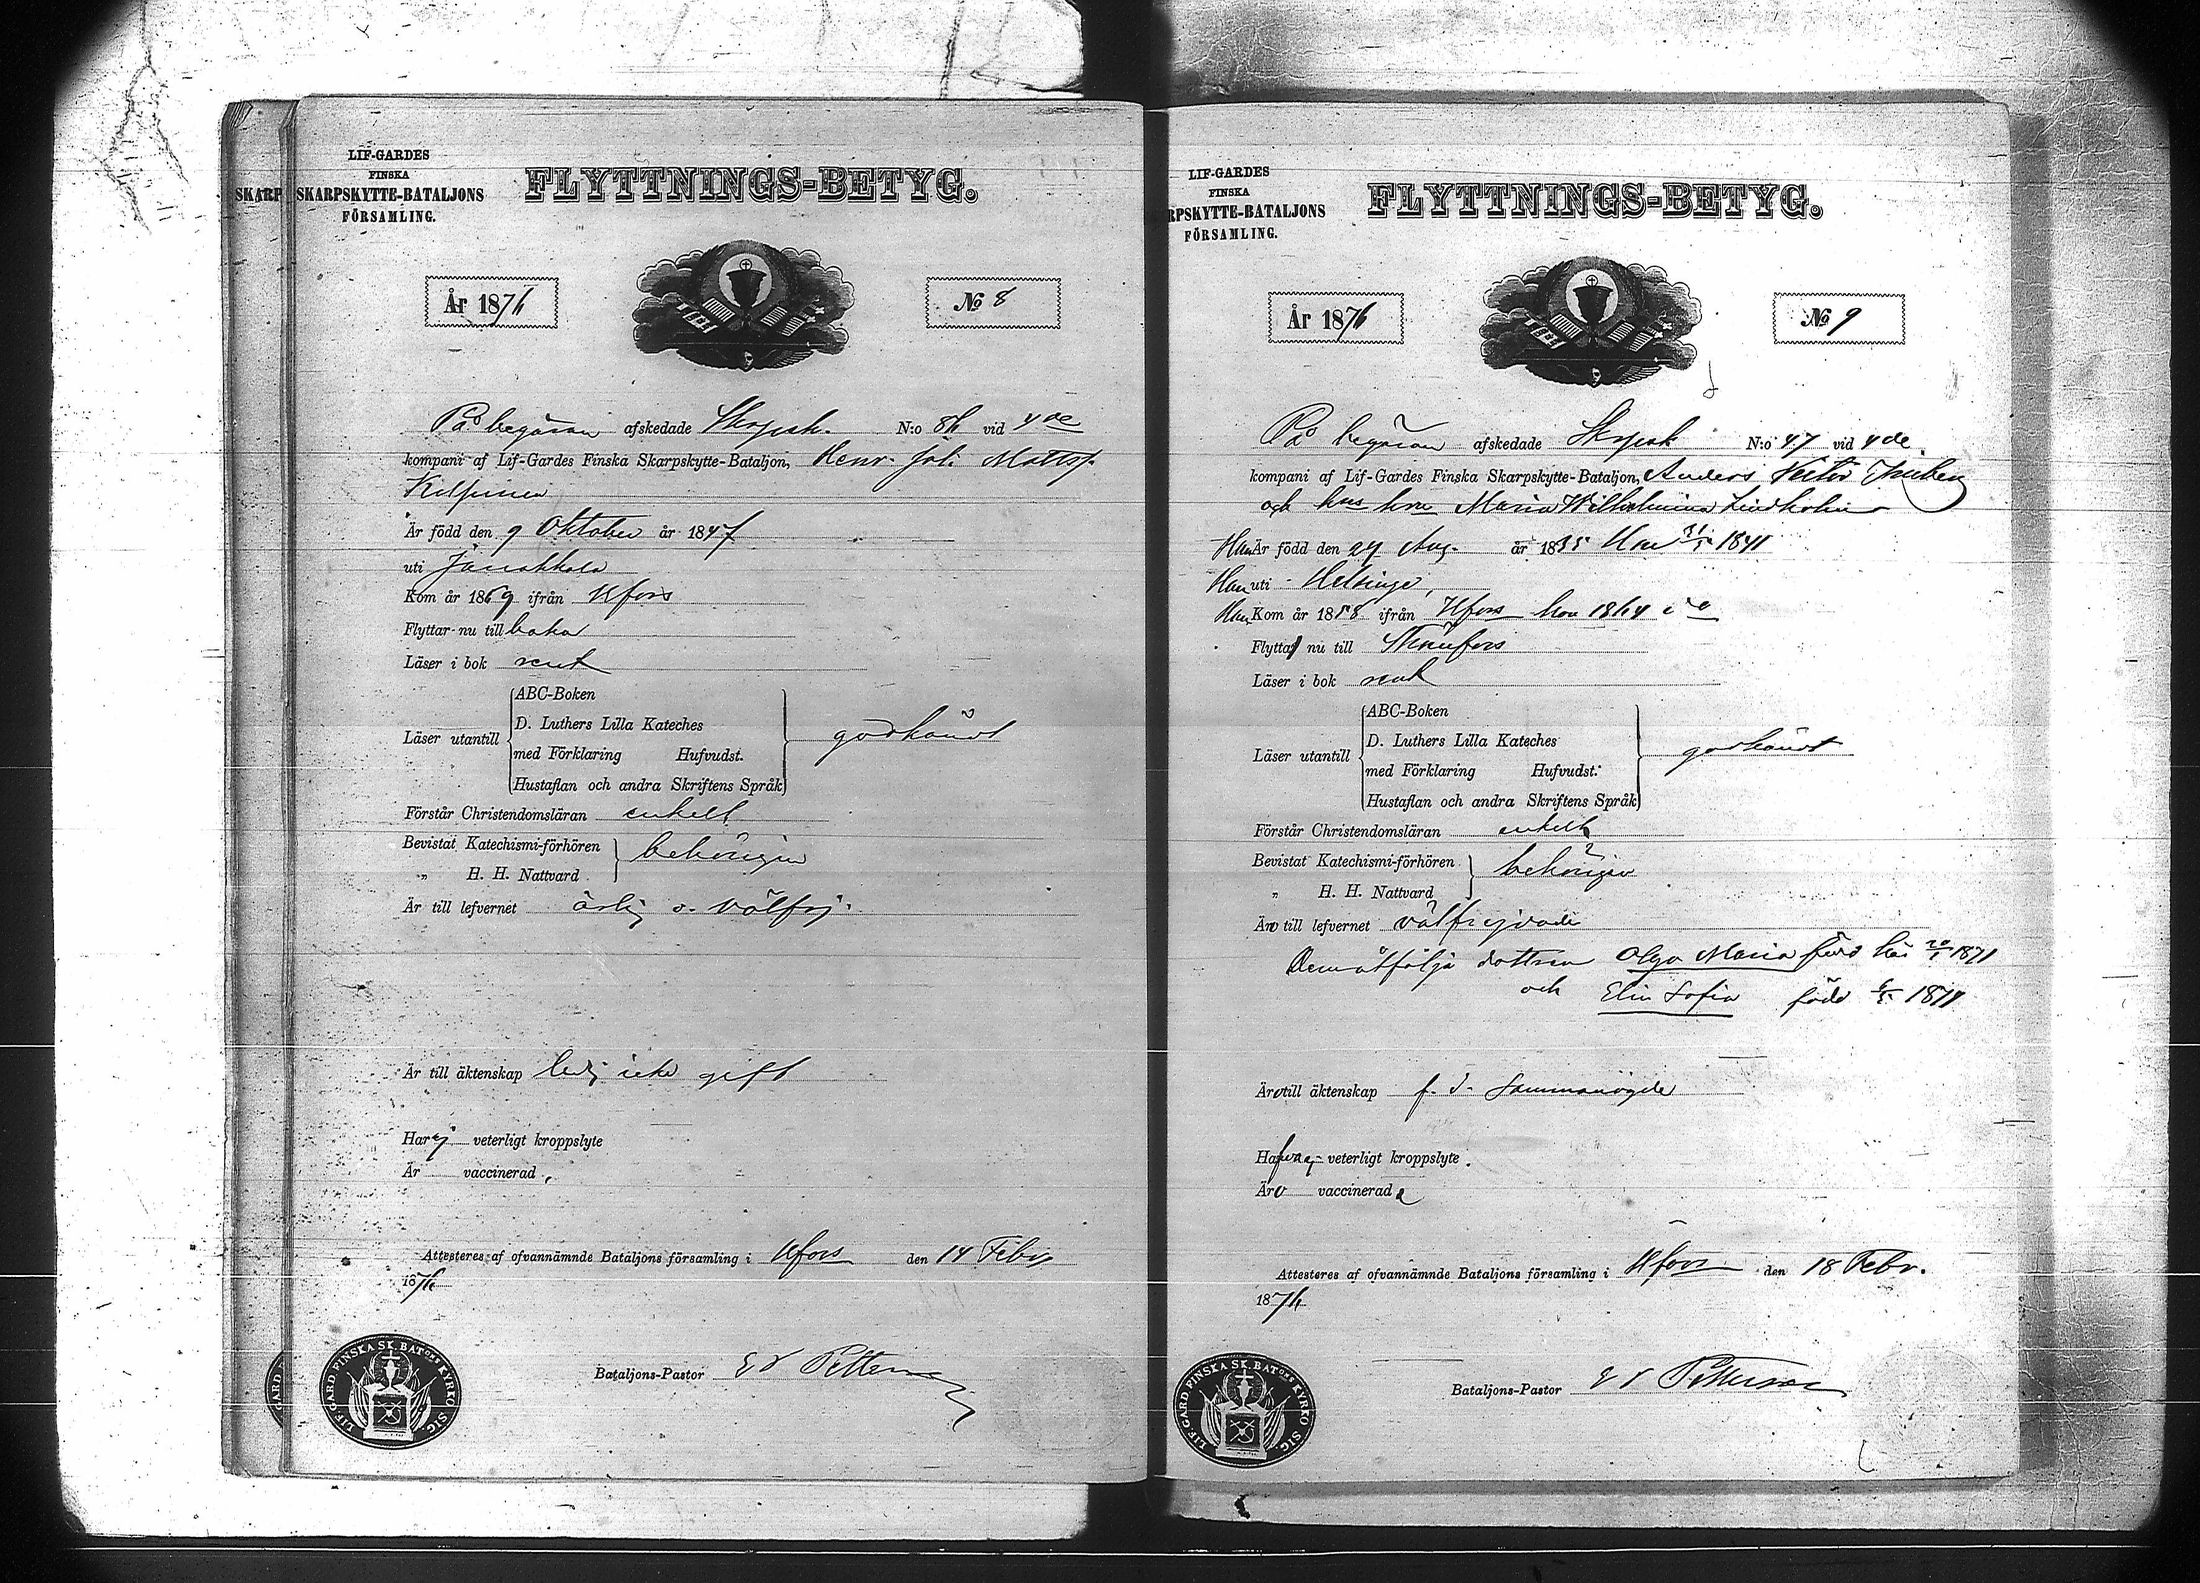 LIF-GARDES
FINSKA
SKARP SKARPSKYTTE-BATALJONS
FÖRSAMLING.
FLYTTNINGS-BETYG.
År 1876
No 8
På begäran afskedade Skrpsk. N:o 86 vid 4de
kompani af Lif-Gardes Finska Skarpskytte-Bataljon, Henr. Joh. Mattsf.
Är född den 9 Oktober år 1847
uti Janakkala
Kom år 1869 ifrån Hfors
Flyttar nu till baka
Läser i bok rent
Läser utantill
ABC-Boken
D. Luthers Lilla Kateches
med Förklaring Hufvudst.
Hustaflan och andra Skriftens Språk
godkändt
Förstår Christendomsläran enkelt
Bevistat Katechismi-förhören
„ H. H. Nattvard
behörigen
Är till lefvernet ärlig o. välfrj.
Är till äktenskap ledig icke gift
Har ej veterligt kroppslyte
Är vaccinerad.
Attesteres af ofvannämnde Bataljons församling i Hfors den 14 Febr.
1876
Bataljons-Pastor
LIF.GARD.FINSKA SK.BATONS KYRKO SIG.
LIF-GARDES
FINSKA
RPSKYTTE-BATALJONS
FÖRSAMLING.
FLYTTNINGS-BETYG.
År 1876
No 9
På begäran afskedade Skrpsk N:o 47 vid 4de
kompani af Lif-Gardes Finska Skarpskytte-Bataljon, Anders Victor
och hus hru Maria Wilhelmina Lindholm
Han Är född den 29 Aug. år 1835 Hon 31/5 1841
Han uti Helsinge,
Han Kom år 1858 ifrån Hfors hon 1864 do
Flytta nu till
Läser i bok rent
Läser utantill
ABC-Boken
D. Luthers Lilla Kateches
med Förklaring Hufvudst.
Hustaflan och andra Skriftens Språk
godkändt
Förstår Christendomsläran enkelt
Bevistat Katechismi-förhören
„ H. H. Nattvard
behörigen
Äro till lefvernet välfrejdade
Dem åtfölja döttren Olga Maria född här 20/1 1871
och Elin Sofia född 1874
Äro till äktenskap f. d. sammanvigde
Hafva ej veterligt kroppslyte.
Äro vaccinerade
Attesteres af ofvannämnde Bataljons församling i Hfors den 18 Febr.
1876
Bataljons-Pastor
LIF.GARD.FINSKA SK.BATONS KYRKO SIG.